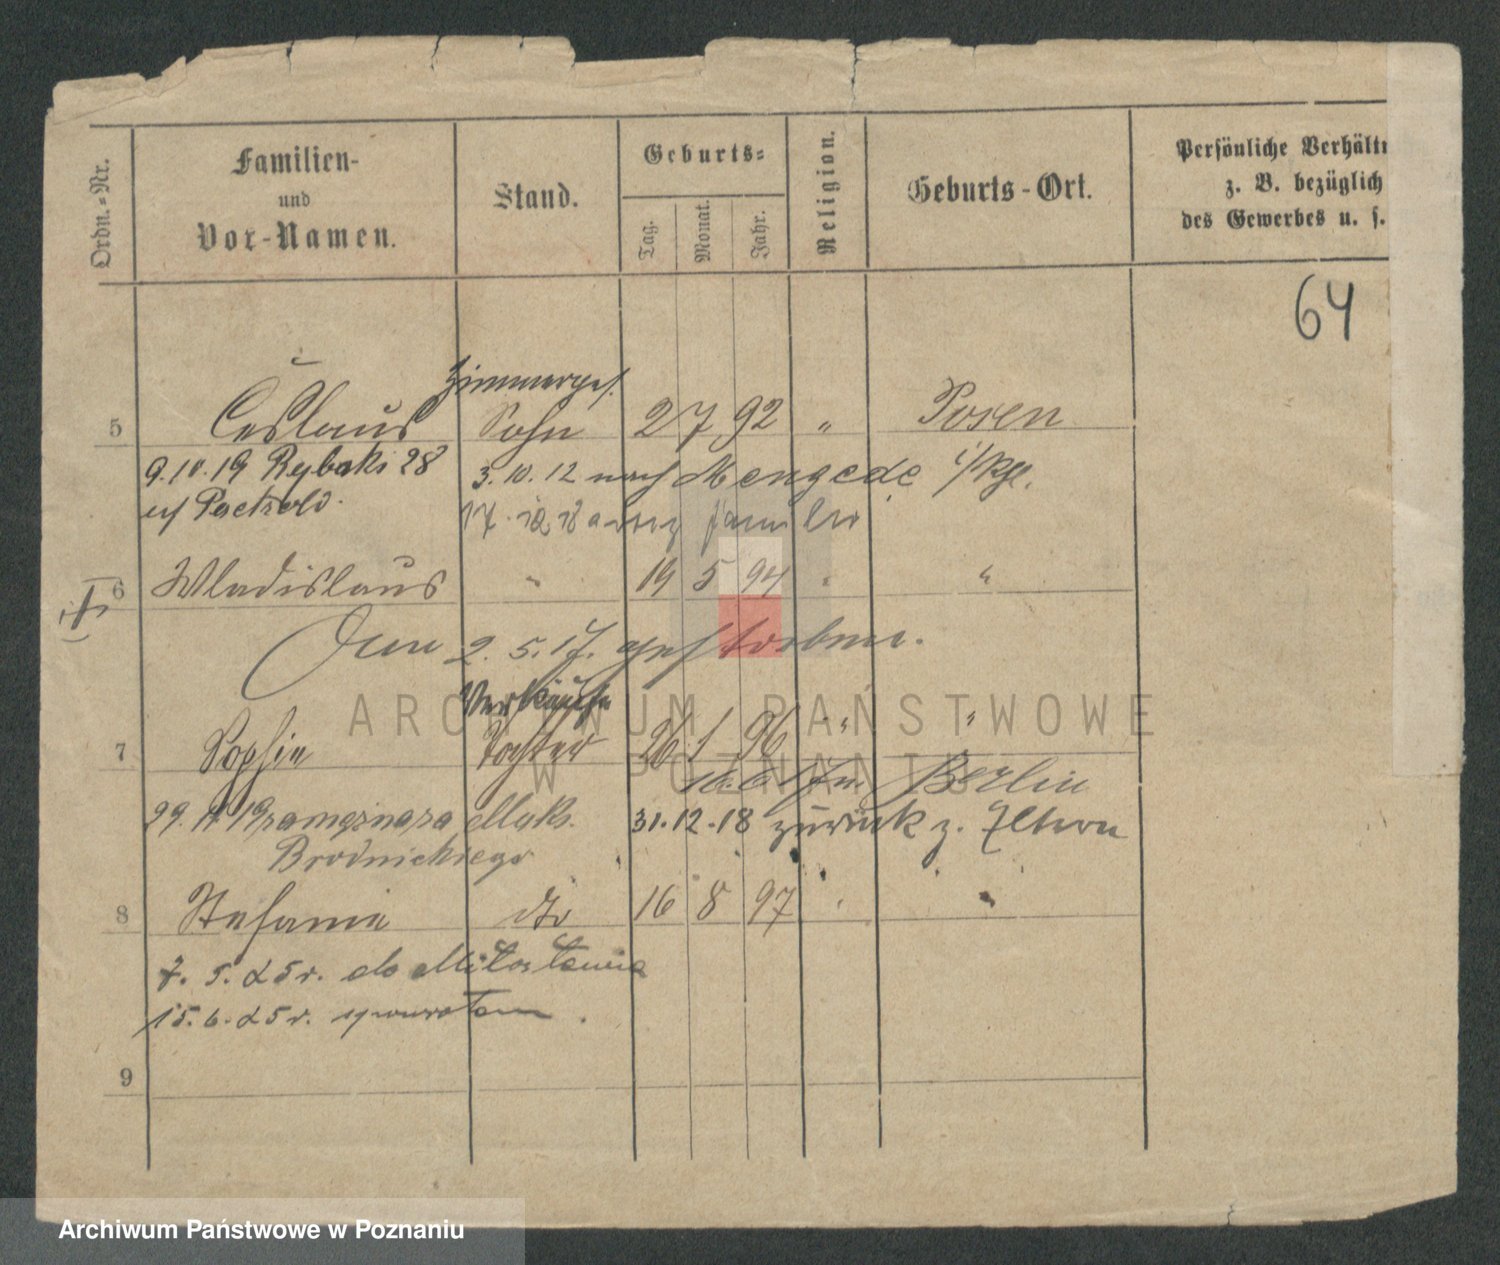 Ordn.-Nr.
Familien-
und
Vor-Namen.
Stand.
Geburts-
Tag.
Monat.
Jahr.
Religion.
Geburts-Ort.
Persönliche Verhält
z. B. bezüglich
des Gewerbes u. s.
64
Zimmerges.
5 Ceslaus Sohn 2 7 92 " Posen
9.10.19 Rybaki 28 3.10.12 nach Mengede
b/ Paetzold. 17. familie
6 Wladislaus " 19 5 94 " "
Am 2.5.17. gestorben.
Verkäufn
7 Sophie Tochter 26 1 96 " "
Berlin
29. Maks. 31.12.18 zurück z. Eltern
Brodnickiego
8 Stefanie dto 16 8 97 " "
7. 5. 25 r. do Miłosławia
15. 6. 25 r. zpowrotem.
9
ARCHIWUM PAŃSTWOWE
W POZNANIU
Archiwum Państwowe w Poznaniu